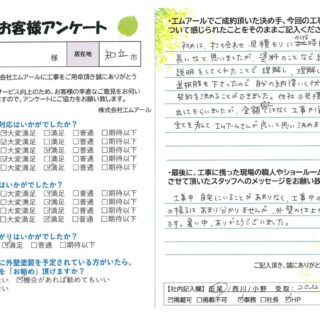 お客様アンケート
様 居住地 知立市
会社エムアールに工事をご用命頂き誠にありがとう
サービス向上のため、お客様の率直なご意見をお伺い
ますので、アンケートにご協力をお願い致します。
株式会社エムアール
対応はいかがでしたか？
大変満足 満足 普通 期待以下
大変満足 満足 普通 期待以下
大変満足 満足 普通 期待以下
大変満足 満足 普通 期待以下
はいかがでしたか？
大変満足 満足 普通 期待以下
大変満足 満足 普通 期待以下
大変満足 満足 普通 期待以下
がりはいかがでしたか？
大変満足 満足 普通 期待以下
に外壁塗装を予定されている方がいたら、
を「お勧め」頂けますか？
い 機会があれば勧めてもいい
・エムアールでご成約頂いた決め手、今回の工事
ついて感じられたことをそのままご記入ください
初めは、打ち合わせ、見積もりに
長いなと思いましたが、塗料のことなど
説明をしてくれたことで理解し、
選択肢も下さったので自分の
契約を決めることができました。
出してもらいましたが、金額ではなく工事の
全てを考えてエムアールさんが良いと思い決めま
・最後に、工事に携った現場の職人やショールーム
させて頂いたスタッフへのメッセージをお願い致
工事中 自宅にいることがあまりなく、工事中の
の様子はあまり分かりませんが、外壁の仕上
す。暑い中、ありがとうございました。
ご記入頂き、誠にありがと
【社内記入欄】 西川／小野 受取： 2022
掲載可 掲載不可 事務 社長 HP